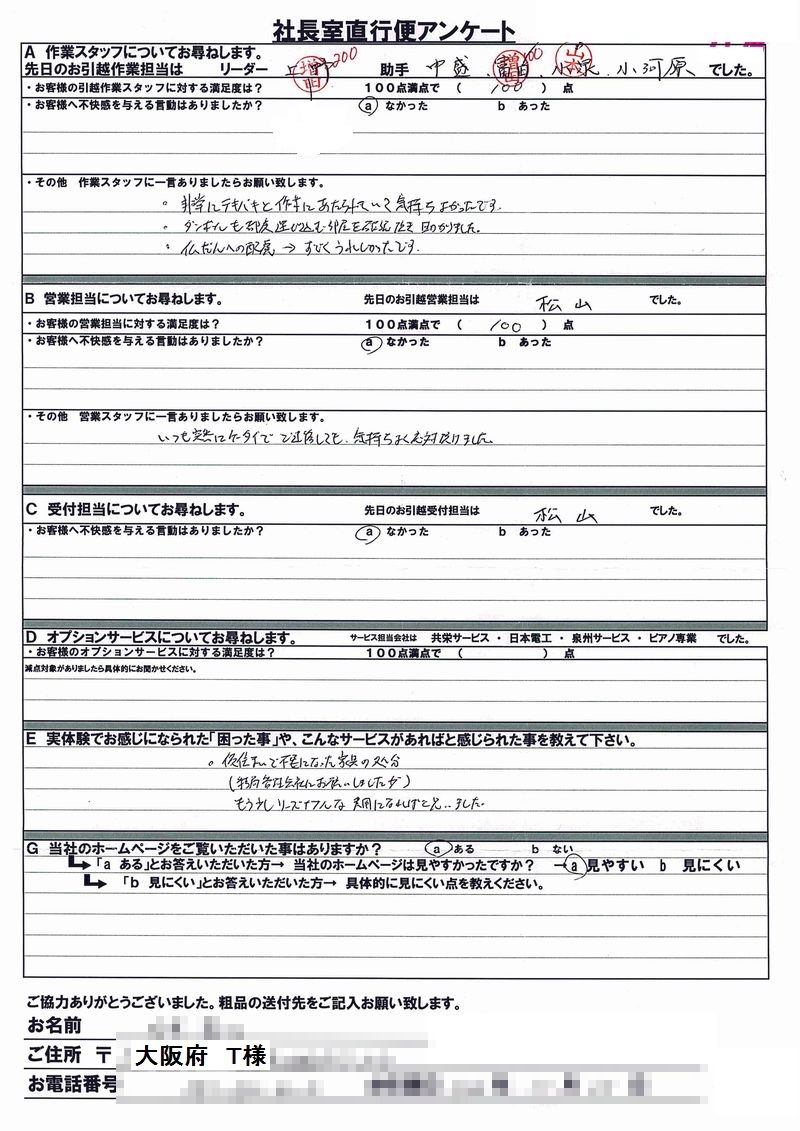 社長室直行便アンケート
A 作業スタッフについてお尋ねします。
先日のお引越作業担当は リーダー 増田 200 助手 中盛、増田 100 小泉、小河原 でした。
・お客様の引越作業スタッフに対する満足度は? 100点満点で ( 100 ) 点
・お客様へ不快感を与える言動はありましたか? a なかった b あった
・その他 作業スタッフに一言ありましたらお願い致します。
。非常にテキパキと作業にあたられていて気持ちよかったです。
。ダンボールも都度運び込む部屋を
。仏だんへの配慮→すごくうれしかったです。
B 営業担当についてお尋ねします。 先日のお引越営業担当は 松山 でした。
・お客様の営業担当に対する満足度は? 100点満点で ( 100 ) 点
・お客様へ不快感を与える言動はありましたか? a なかった b あった
・その他 営業スタッフに一言ありましたらお願い致します。
いつも突然にケータイでご連絡しても、気持ちよく応対
C 受付担当についてお尋ねします。 先日のお引越受付担当は 松山 でした。
・お客様へ不快感を与える言動はありましたか? a なかった b あった
D オプションサービスについてお尋ねします。 サービス担当会社は 共栄サービス ・ 日本電工 ・ 泉州サービス ・ ピアノ専業 でした。
・お客様のオプションサービスに対する満足度は? 100点満点で ( ) 点
減点対象がありましたら具体的にお聞かせください。
E 実体験でお感じになられた「困った事」や、こんなサービスがあればと感じられた事を教えて下さい。
。仮住まいで不要になった家具の処分
(結局各社会社にお払いしましたが)
もう少しリーズナブルな
G 当社のホームページをご覧いただいた事はありますか? a ある b ない
「a ある」とお答えいただいた方→ 当社のホームページは見やすかったですか? →a 見やすい b 見にくい
「b 見にくい」とお答えいただいた方→ 具体的に見にくい点を教えください。
ご協力ありがとうございました。粗品の送付先をご記入お願い致します。
お名前
ご住所 〒 大阪府 T様
お電話番号